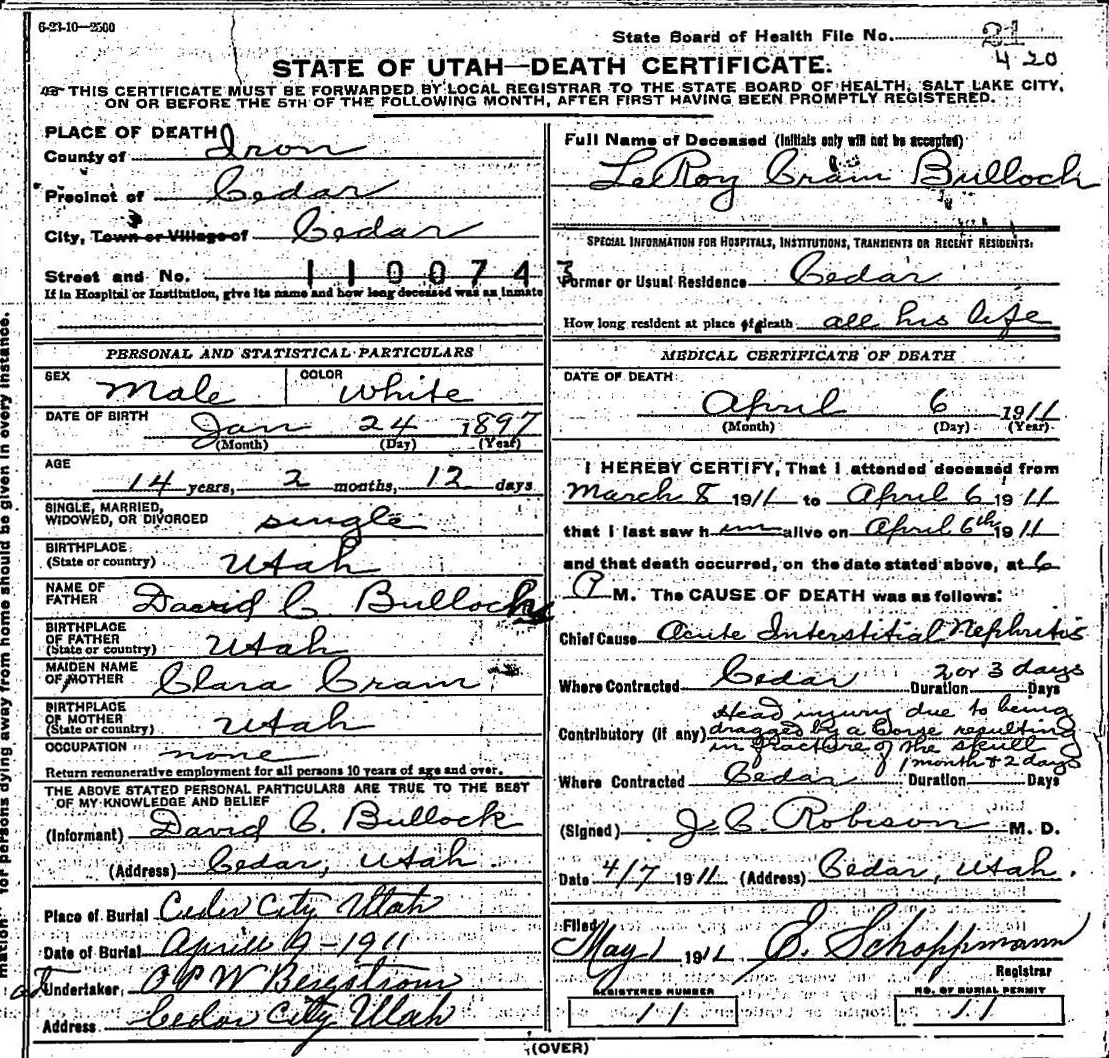 6-23-10—2500
State Board of Health File No. 21
420
STATE OF UTAH—DEATH CERTIFICATE.
THIS CERTIFICATE MUST BE FORWARDED BY LOCAL REGISTRAR TO THE STATE BOARD OF HEALTH, SALT LAKE CITY,
ON OR BEFORE THE 5TH OF THE FOLLOWING MONTH, AFTER FIRST HAVING BEEN PROMPTLY REGISTERED.
PLACE OF DEATH
County of Iron
Precinct of Cedar
City, Town or Village of Cedar
Street and No. 110074
If in Hospital or Institution, give its name and how long deceased was an inmate
PERSONAL AND STATISTICAL PARTICULARS
SEX Male COLOR White
DATE OF BIRTH
Jan 24 1897
(Month) (Day) (Year)
AGE
14 years, 2 months, 12 days
SINGLE, MARRIED,
WIDOWED, OR DIVORCED single
BIRTHPLACE
(State or country) Utah
NAME OF
FATHER David C. Bullock
BIRTHPLACE
OF FATHER
(State or country) Utah
MAIDEN NAME
OF MOTHER Clara Cram
BIRTHPLACE
OF MOTHER
(State or country) Utah
OCCUPATION none
Return remunerative employment for all persons 10 years of age and over.
THE ABOVE STATED PERSONAL PARTICULARS ARE TRUE TO THE BEST
OF MY KNOWLEDGE AND BELIEF
(Informant) David C. Bullock
(Address) Cedar, Utah.
Place of Burial Ceder City Utah
Date of Burial Aprill 9-1911
Undertaker, O P W Bergstrom
Address Cedar City Utah
Full Name of Deceased (Initials only will not be accepted)
LeRoy Cram Bulloch
SPECIAL INFORMATION FOR HOSPITALS, INSTITUTIONS, TRANSIENTS OR RECENT RESIDENTS:
3
Former or Usual Residence Cedar
How long resident at place of death all his life
MEDICAL CERTIFICATE OF DEATH
DATE OF DEATH:
April 6 1911
(Month) (Day) (Year)
I HEREBY CERTIFY, That I attended deceased from
March 8 1911 to April 6 1911
that I last saw him alive on April 6th 1911
and that death occurred, on the date stated above, at 6
P M. The CAUSE OF DEATH was as follows:
Chief Cause Acute Interstitial Nephritis
Where Contracted Cedar Duration 2 or 3 days Days
Contributory (if any) Head injury due to being
dragged by a horse resulting
in fracture of the skull
Where Contracted Cedar Duration 1 month & 2 days Days
(Signed) J. C. Robison M. D.
Date 4/7 1911 (Address) Cedar, Utah.
Filed
May 1 1911 E. Schoppmann
Registrar
REGISTERED NUMBER
11
NO. OF BURIAL PERMIT
11
(OVER)
for persons dying away from home should be given in every instance.